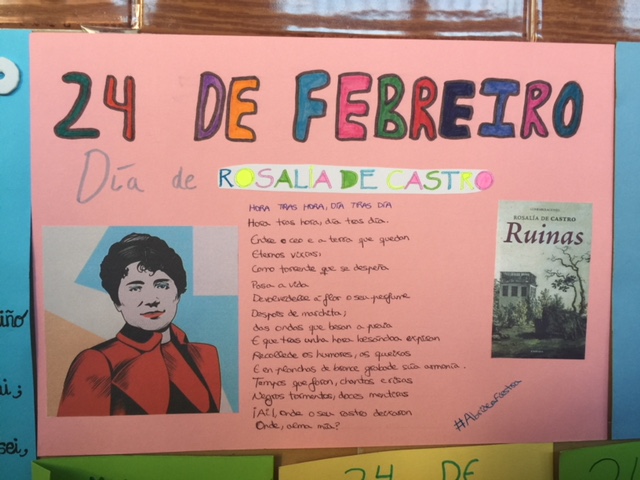 24 DE FEBREIRO
Día de ROSALÍA DE CASTRO
HORA TRAS HORA, DÍA TRAS DÍA
Hora tras hora, día tras día.
Entre o ceo e a terra que quedan
Eternos vixías;
Como torrente que se despeña
Pasa a vida
Devolvedelle á flor o seu perfume
Despois de marchita;
das ondas que besan a praia
E que tras unha hora besándoa expiran
Recollede os humores, as queixas
E en pranchas de bronce grabade súa armonía.
Tempos que foron, chantos e risas
Negros tormentos, doces mentiras
¡Ai!, onde o seu rastro deixaron
Onde, alma mía?
ROSALÍA DE CASTRO
Ruinas
iño
ai;
sei,
24 DE